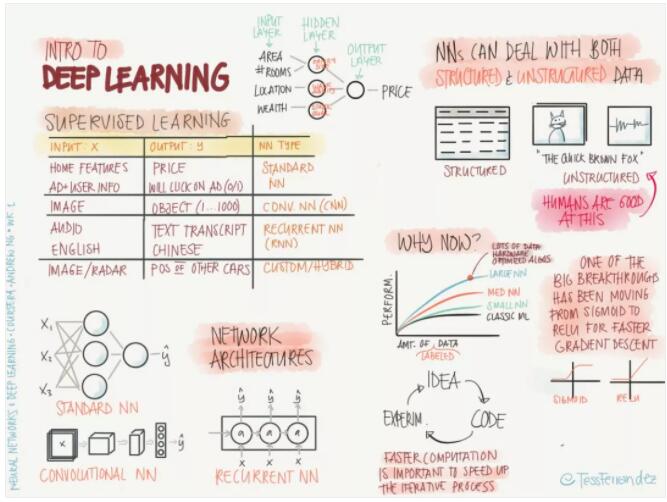 INTRO TO
DEEP LEARNING
INPUT LAYER
HIDDEN LAYER
OUTPUT LAYER
AREA
#ROOMS
LOCATION
WEALTH
PRICE
SUPERVISED LEARNING
INPUT: X OUTPUT: y NN TYPE
HOME FEATURES PRICE STANDARD
AD+USER INFO WILL CLICK ON AD (0/1) NN
IMAGE OBJECT (1...1000) CONV. NN (CNN)
AUDIO TEXT TRANSCRIPT RECURRENT NN
ENGLISH CHINESE (RNN)
IMAGE/RADAR POS OF OTHER CARS CUSTOM/HYBRID
NNs CAN DEAL WITH BOTH
STRUCTURED & UNSTRUCTURED DATA
STRUCTURED
"THE QUICK BROWN FOX"
UNSTRUCTURED
HUMANS ARE GOOD
AT THIS
WHY NOW?
LOTS OF DATA
HARDWARE
OPTIMIZED ALGOS
LARGE NN
MED NN
SMALL NN
CLASSIC ML
PERFORM.
AMT. OF DATA
LABELED
ONE OF THE
BIG BREAKTHROUGHS
HAS BEEN MOVING
FROM SIGMOID TO
RELU FOR FASTER
GRADIENT DESCENT
SIGMOID RELU
IDEA
CODE
EXPERIM.
FASTER COMPUTATION
IS IMPORTANT TO SPEED UP
THE ITERATIVE PROCESS
NETWORK
ARCHITECTURES
X₁
X₂
X₃
ŷ
STANDARD NN
X
ŷ
CONVOLUTIONAL NN
ŷ ŷ ŷ
a a a
RECURRENT NN
NEURAL NETWORKS & DEEP LEARNING • COURSERA • ANDREW NG • WK 1
@TessFerrandez